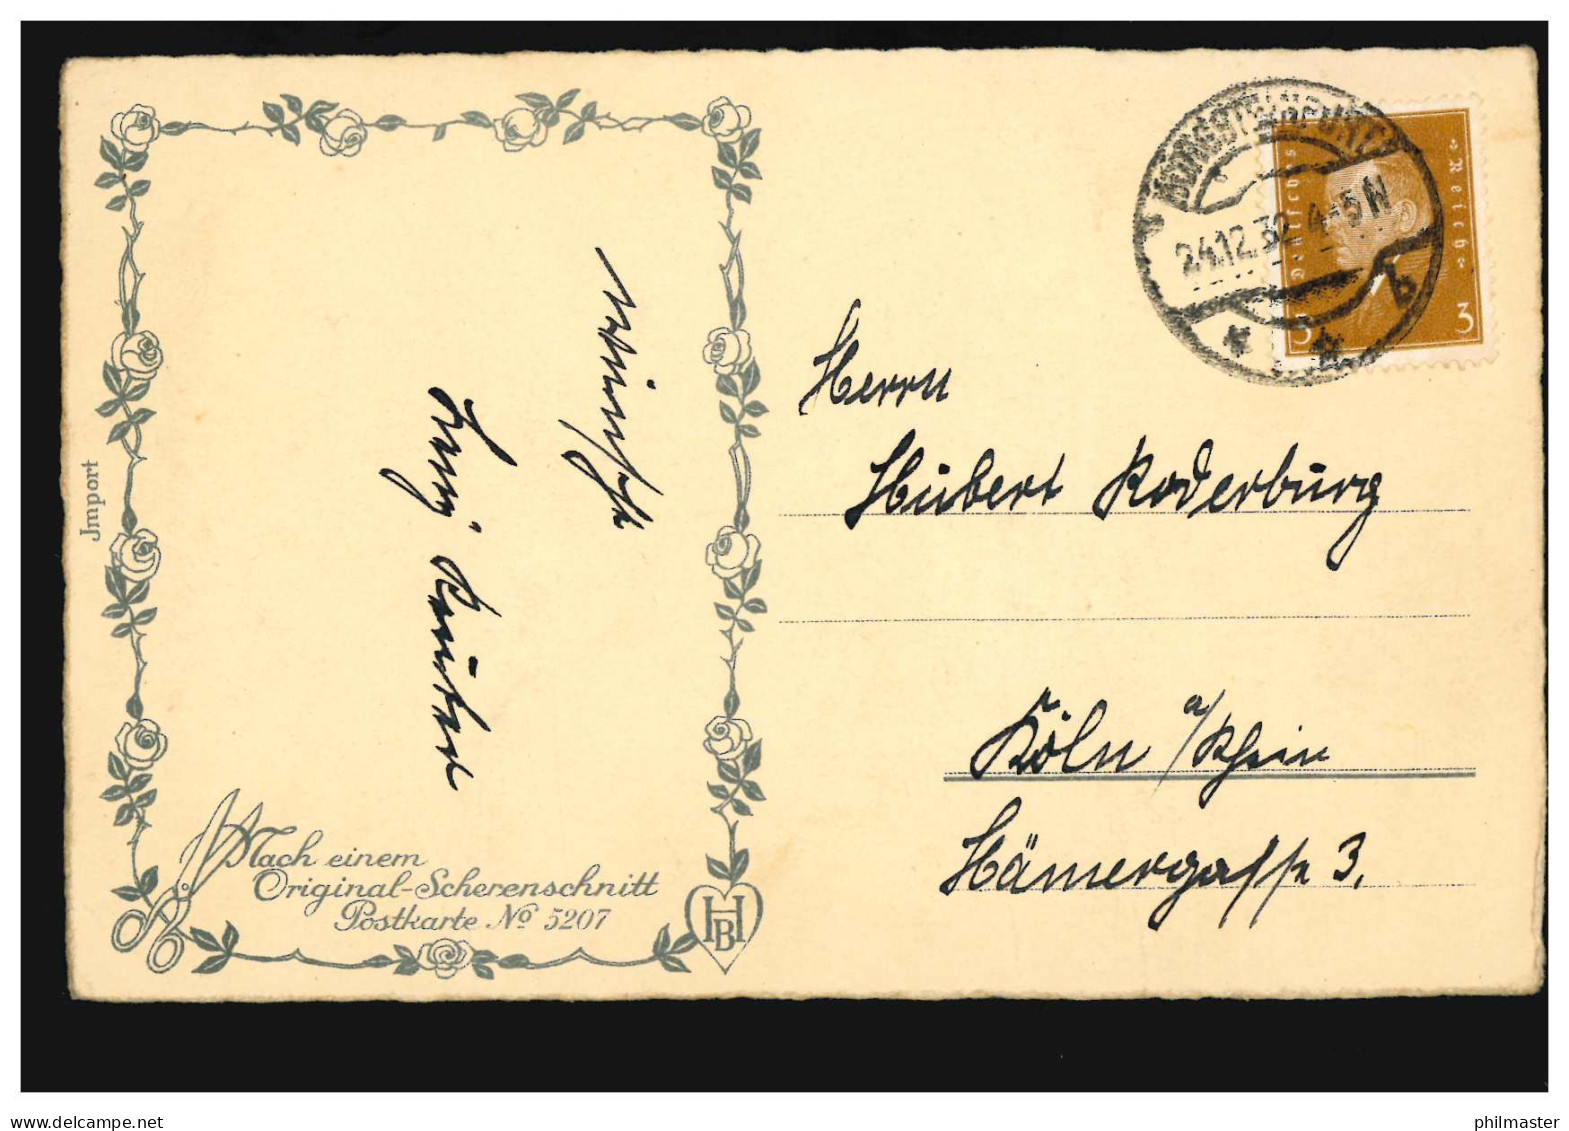 Jmport
wünscht
Nach einem
Original-Scherenschnitt
Postkarte No 5207
HBH
24.12.32. 4-5 N
b
Deutsches Reich
3 3
Herrn
Hubert Roderburg
Köln a/Rhein
Hämergasse 3.
www.delcampe.net
philmaster